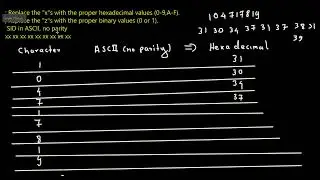 Replace the "x"s with the proper hexadecimal values (0-9,A-F).
place the "z"s with the proper binary values (0 or 1).
SID in ASCII, no parity
xx xx xx xx xx xx xx xx xx
104717819
31 30 34 37 31 37 38 31
39
Character ASCII (no parity) ⇒ Hexadecimal
1 31
0 30
4 34
7 37
1
7
8
1
9